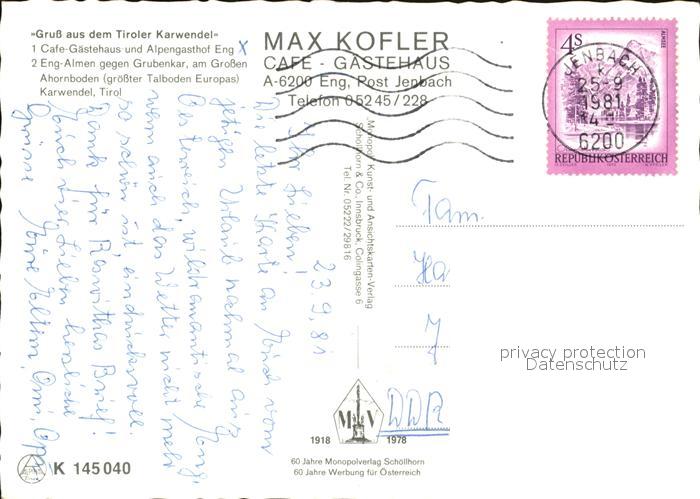 »Gruß aus dem Tiroler Karwendel«
1 Cafe-Gästehaus und Alpengasthof Eng X
2 Eng-Almen gegen Grubenkar, am Großen
Ahornboden (größter Talboden Europas)
Karwendel, Tirol
MAX KOFLER
CAFE - GÄSTEHAUS
A-6200 Eng, Post Jenbach
Telefon 05245/228
4 S
ALMSEE
REPUBLIK ÖSTERREICH
JENBACH
25-9
1981
6200
Monopol Kunst- und Ansichtskarten-Verlag
Schöllhorn & Co., Innsbruck, Colingasse 6
Tel. Nr. 05222/29816
23.9.81
Ihr Lieben!
Die letzte Karte an Euch vom
jetzigen Urlaub nochmal aus
Österreich,
wenn auch das Wetter nicht mehr
so schön ist, eindrucksvoll.
Dank für Roswithas Brief!
Euch vier Lieben herzliche
Grüsse Eure Eltern, Omi, Opi
Fam.
Ha
J
DDR
privacy protection
Datenschutz
M V
1918 1978
60 Jahre Monopolverlag Schöllhorn
60 Jahre Werbung für Österreich
K 145 040